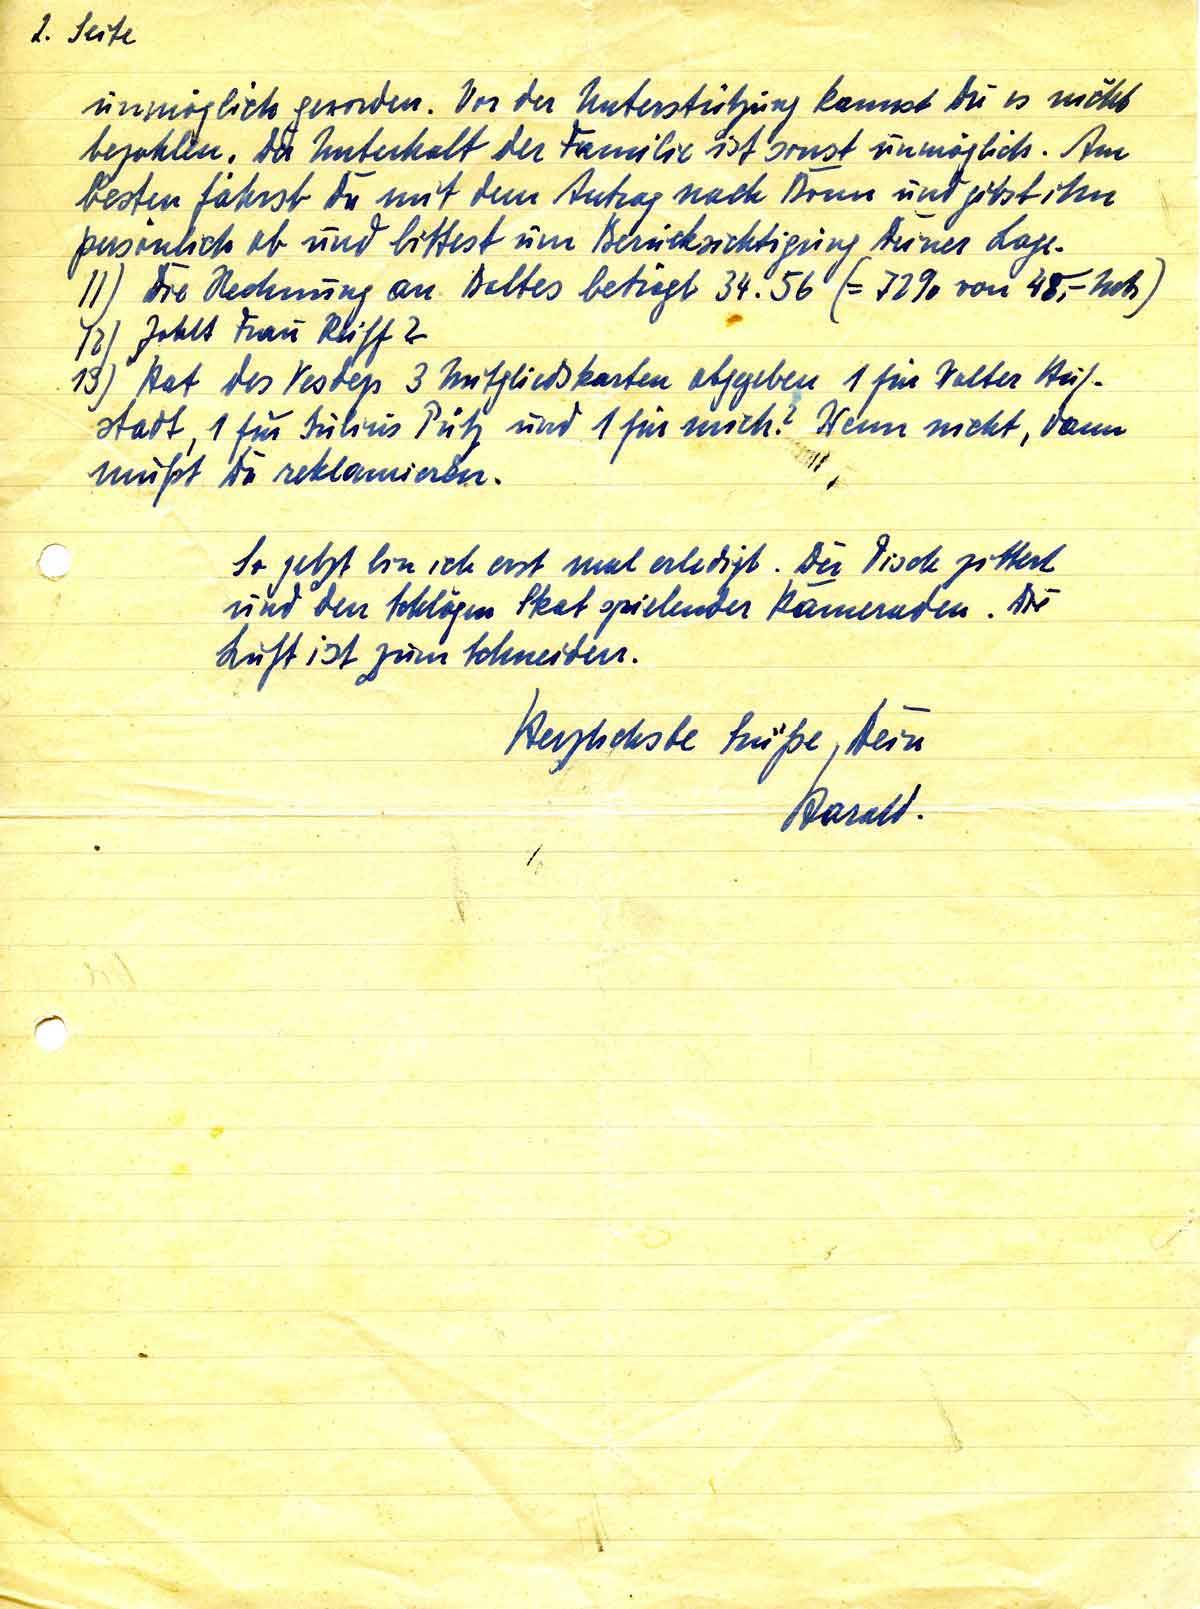 2. Seite
unmöglich geworden. Von der Unterstützung kannst Du es nicht
bezahlen. Der Unterhalt der Familie ist sonst unmöglich. Am
besten fährst Du mit dem Antrag nach Bonn und gibst ihn
persönlich ab und bittest um Berücksichtigung Deiner Lage.
11) Die Rechnung an Baltes beträgt 34.56 (= 72% von 48,- Mk)
12) Zahlt Frau Reiff?
13) Hat des Vesdeys 3 Mitgliedskarten abgegeben 1 für Walter Huf-
stadt, 1 für Julius Pütz und 1 für mich? Wenn nicht, dann
mußt Du reklamieren.
So jetzt bin ich erst mal erledigt. Der Tisch zittert
und den Schlägen Skat spielender Kameraden. Die
Luft ist zum Schneiden.
Herzlichste Grüße, Dein
Harald.